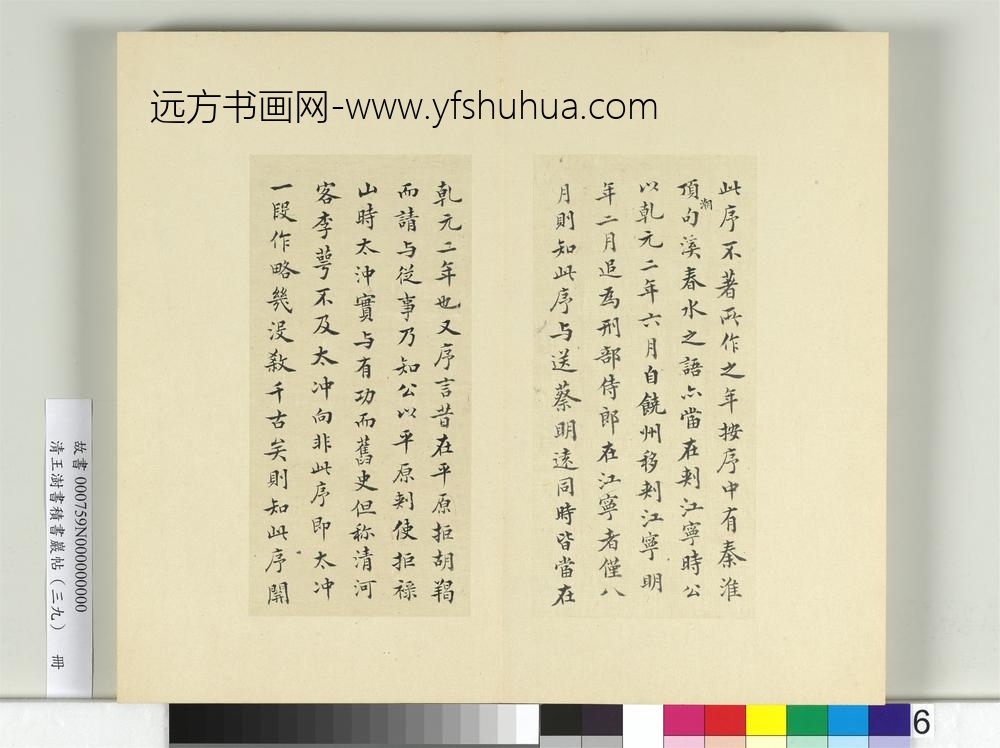 远方书画网-www.yfshuhua.com
此序不著所作之年按序中有秦淮
頂潮句溪春水之語亦當在刾江寧時公
以乾元二年六月自饒州移刾江寧明
年二月追為刑部侍郎在江寧者僅八
月則知此序与送蔡明遠同時皆當在
乾元二年也又序言昔在平原拒胡羯
而請与從事乃知公以平原刾使拒祿
山時太沖實与有功而舊史但称清河
客李萼不及太冲向非此序即太冲
一段作略幾没殺千古矣則知此序開
故書 000759N000000000
清王澍書積書巖帖（三九） 冊
6